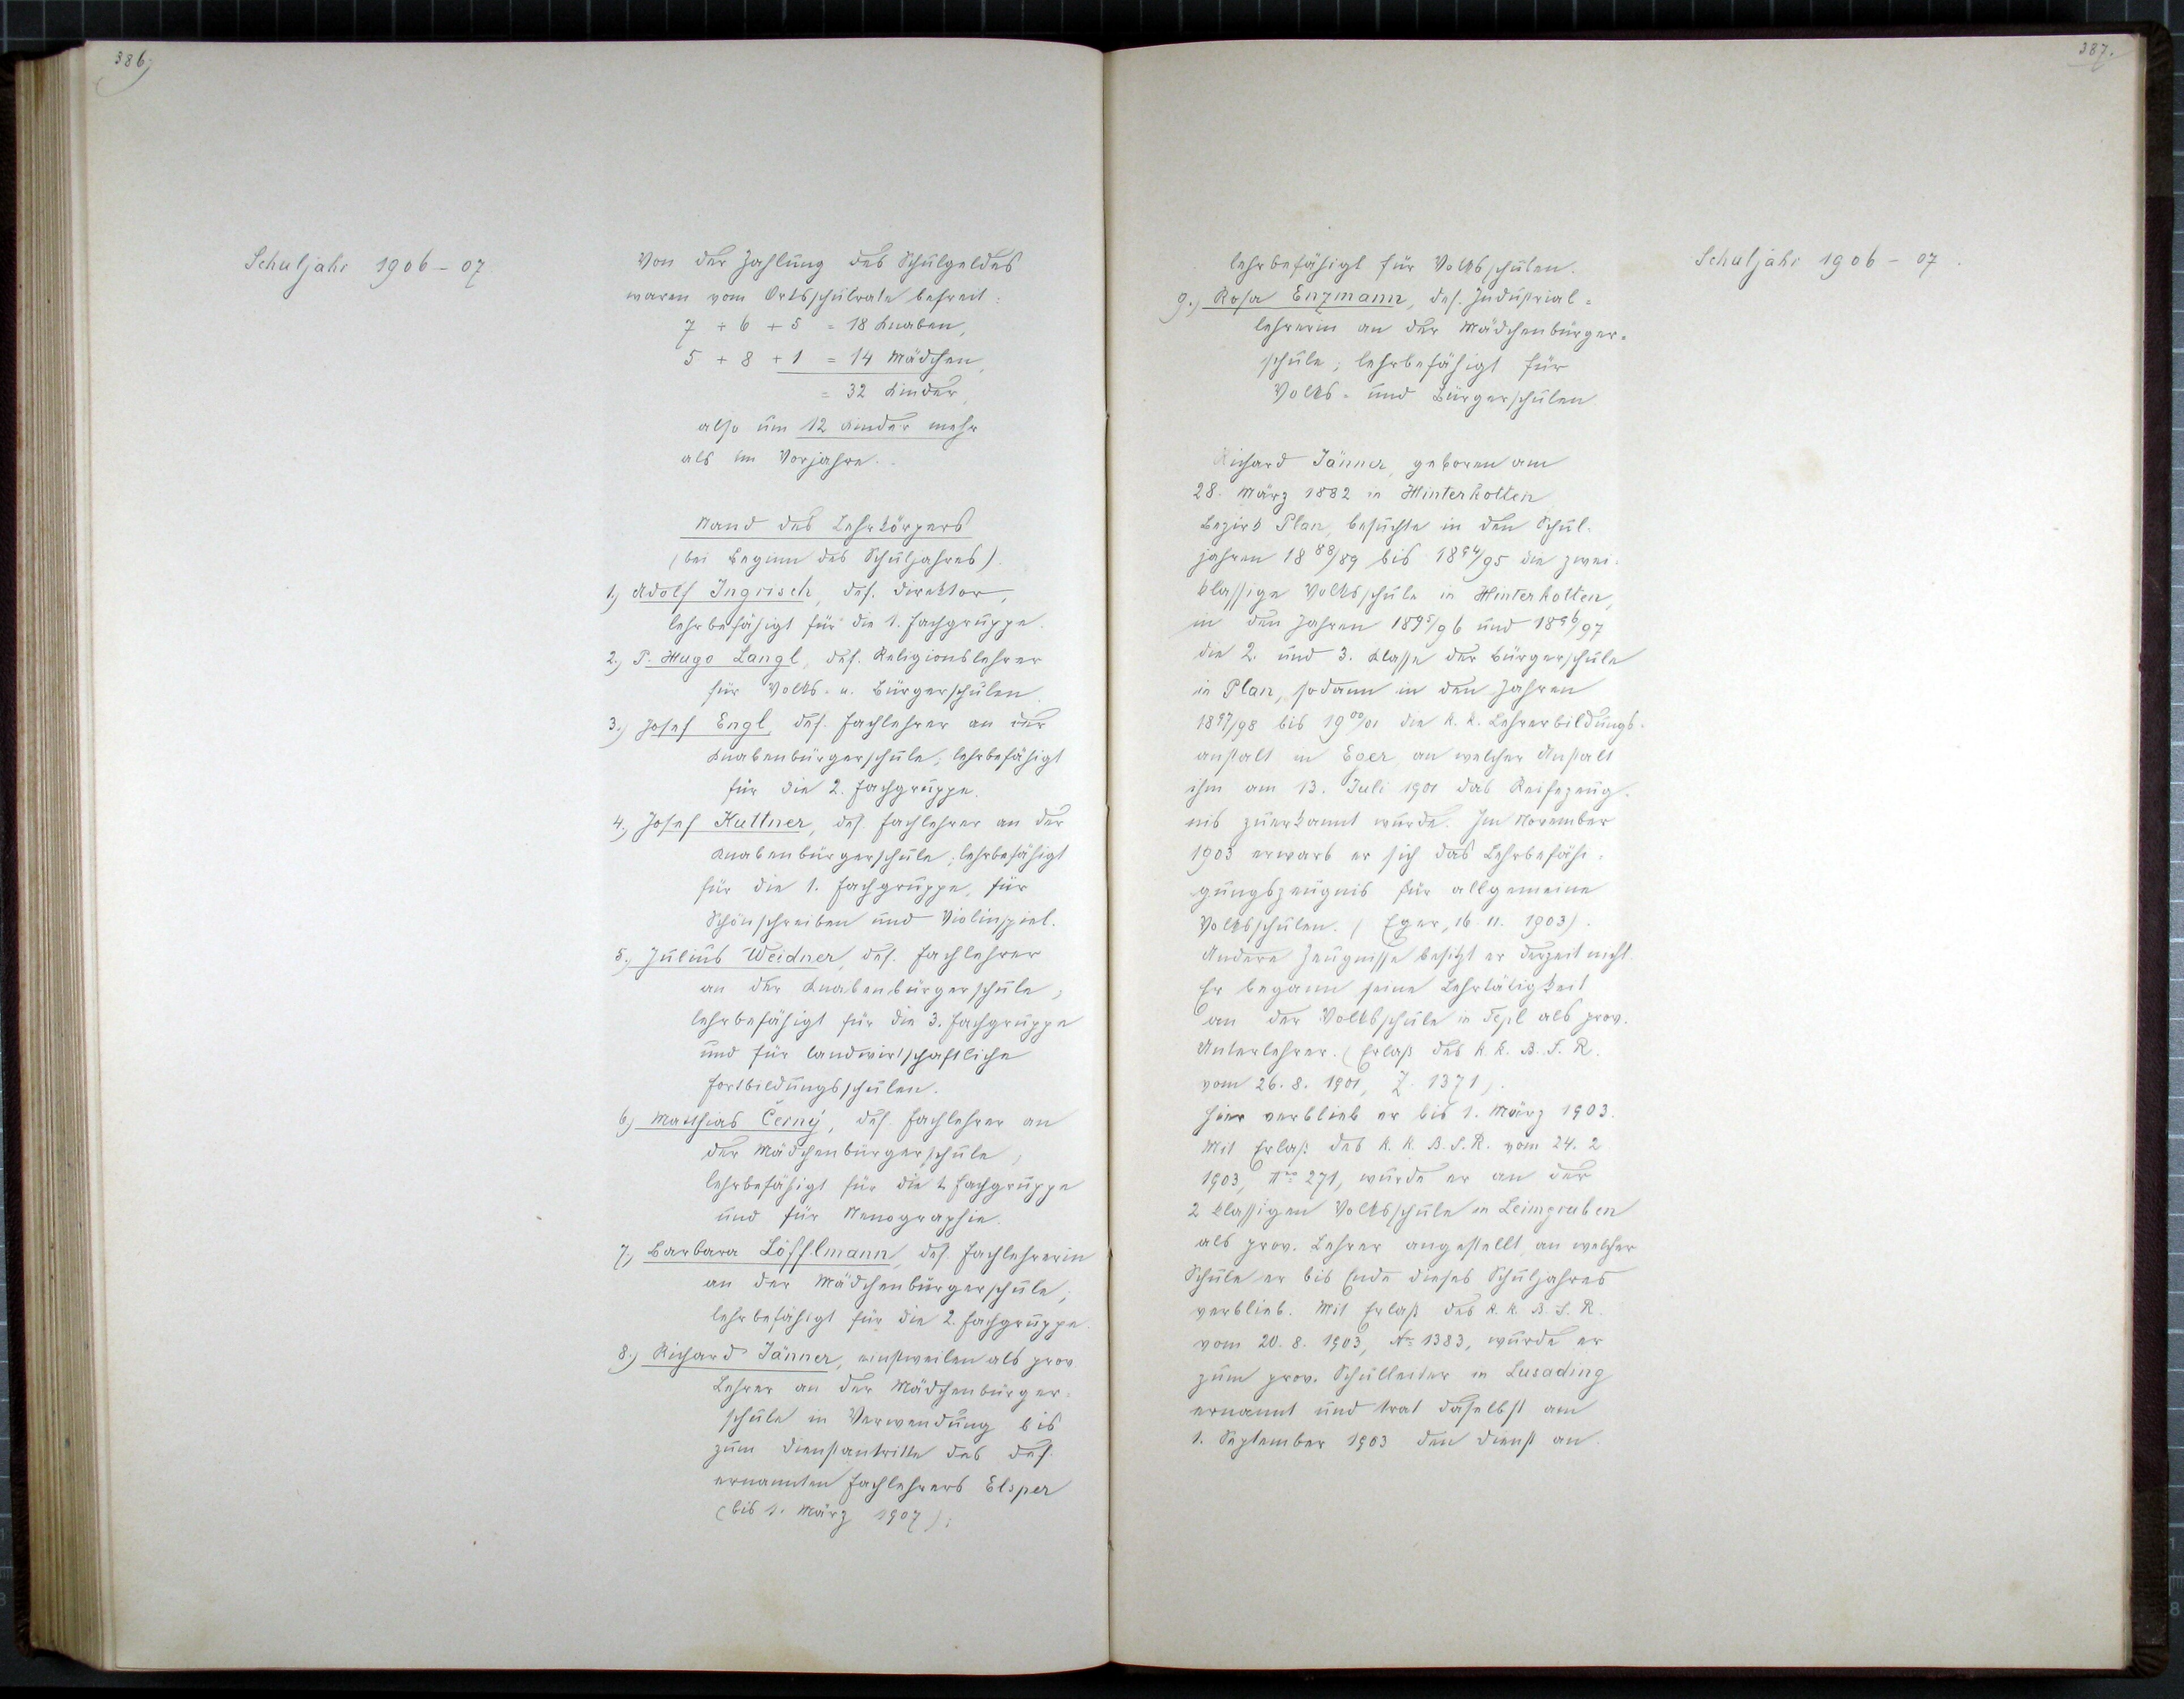 386,
Schuljahr 1906-07
Von der Zahlung des Schulgeldes
waren vom Ortsschulrate befreit:
7 + 6 + 5 = 18 Knaben,
5 + 8 + 1 = 14 Mädchen,
= 32 Kinder,
also um 12 Kinder mehr
als im Vorjahre.
Stand des Lehrkörpers
(bei Beginn des Schuljahres).
1.) Adolf Ingrisch, def. Direktor,
lehrbefähigt für die 1. Fachgruppe.
2.) P. Hugo Langl, def. Religionslehrer
für Volks- u. Bürgerschulen.
3.) Josef Engl, def. Fachlehrer an der
Knabenbürgerschule; lehrbefähigt
für die 2. Fachgruppe.
4.) Josef Kuttner, def. Fachlehrer an der
Knabenbürgerschule; lehrbefähigt
für die 1. Fachgruppe, für
Schönschreiben und Violinspiel.
5.) Julius Weidner, def. Fachlehrer
an der Knabenbürgerschule;
lehrbefähigt für die 3. Fachgruppe
und für landwirtschaftliche
Fortbildungsschulen.
6.) Matthias Černý, def. Fachlehrer an
der Mädchenbürgerschule;
lehrbefähigt für die Fachgruppe
und für Stenographie.
7.) Barbara Löfflmann, def. Fachlehrerin
an der Mädchenbürgerschule;
lehrbefähigt für die 2. Fachgruppe.
8.) Richard Jänner, einstweilen als prov.
Lehrer an der Mädchenbürger=
schule in Verwendung bis
zum Dienstantritte des def.
ernannten Fachlehrers Elsper
(bis 1. März 1907);
387.
Schuljahr 1906-07.
lehrbefähigt für Volksschulen.
9.) Rosa Enzmann, def. Industrial=
lehrerin an der Mädchenbürger=
schule; lehrbefähigt für
Volks- und Bürgerschulen
Richard Jänner, geboren am
28. März 1882 in Hinterkotten
Bezirk Plan, besuchte in den Schul-
jahren 1888/89 bis 1894/95 die zwei-
klassige Volksschule in Hinterkotten,
in den Jahren 1895/96 und 1896/97
die 2. und 3. Klasse der Bürgerschule
in Plan, sodann in den Jahren
1897/98 bis 1900/01 die k. k. Lehrerbildungs-
anstalt in Eger, an welcher Anstalt
ihm am 13. Juli 1901 das Reifezeug-
nis zuerkannt wurde. Im November
1903 erwarb er sich das Lehrbefähi-
gungszeugnis für allgemeine
Volksschulen. (Eger, 16. 11. 1903).
Andere Zeugnisse besitzt er derzeit nicht.
Er begann seine Lehrtätigkeit
an der Volksschule in Tepl als prov.
Unterlehrer. (Erlaß des k. k. B. S. R.
vom 26. 8. 1901, Z. 1371).
Hier verblieb er bis 1. März 1903.
Mit Erlaß des k. k. B. S. R. vom 24. 2
1903, Nro 271, wurde er an der
2 klassigen Volksschule in Leimgruben
als prov. Lehrer angestellt, an welcher
Schule er bis Ende dieses Schuljahres
verblieb. Mit Erlaß des k. k. B. S. R.
vom 20. 8. 1903, No 1383, wurde er
zum prov. Schulleiter in Lusading
ernannt und trat daselbst am
1. September 1903 den Dienst an.